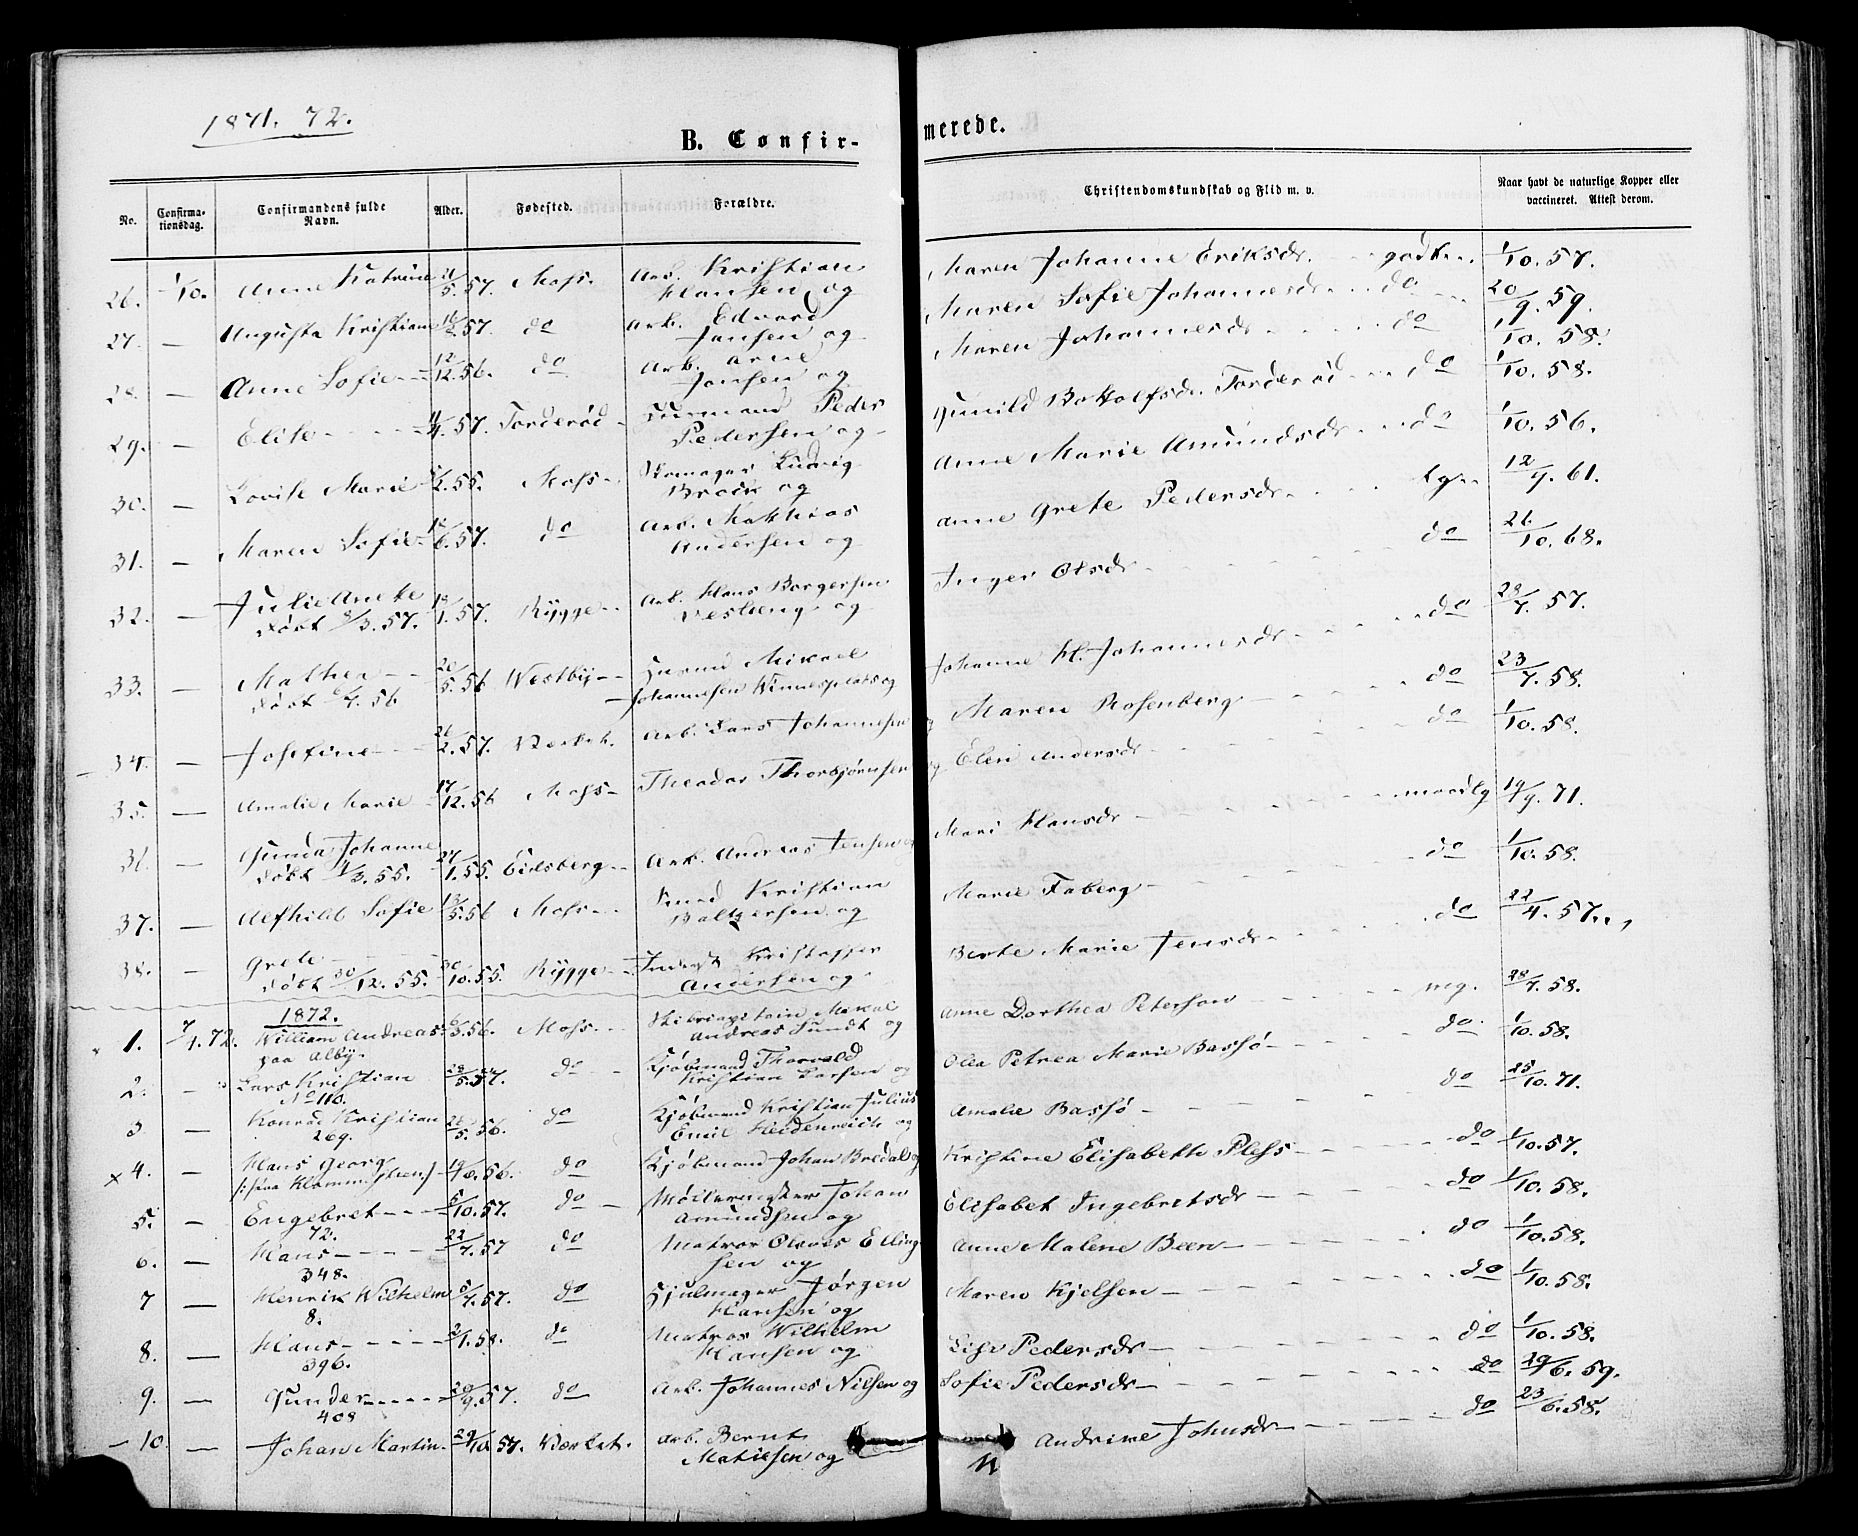 1871. 72.
B. Confir-
merede.
No.
Confirma-
tionsdag.
Confirmandens fulde
Navn.
Alder.
Fødested.
Forældre.
Christendomskundskab og Flid m. v.
Naar havt de naturlige Kopper eller
vaccineret. Attest derom.
26. 1/10. Anne Katrine 21/5.57. Moss. Arb. Kristian Maren Johanne Eriksdr. godt 1/10.57.
Hansen og
27. — Augusta Kristiane 57. do Arb. Edvard Maren Sofie Johannesdr do 20/9.59.
Jansen og
28. — Anne Sofie 12/12.56. do Arb. Arne Maren Johannesdr do 1/10.58.
Jansen og
29. — Elise 57. Torderød Peder Gunild Torderød do 1/10.58.
Pedersen og
30. — Lovise Marie 2.55. Moss Skomager Ludvig Anne Marie Amundsdr do 1/10.56.
Brock og
31. — Maren Sofie 6.57. do Arb. Mathias Anne Grete Pedersdr. tg. 12/9.61.
Andersen og
32. — Julie Anete 1.57. Rygge Arb. Hans Borgersen Inger Olsdr do 26/10.68.
døbt 8/3.57. Vesteng og
33. — Mathea 20/5.56 Westby Husmd Mikael Johanne M. Johannesdr do 23/7.57.
døbt 56 Johannesen og
34. — Josefine 26/2.57. Værket. Arb. Lars Johannesen og Maren Rosenberg do 23/7.58.
35. — Amalie Marie 17/12.56 Moss Theodor Thorbjørnsen og Eleni Andersdr do 1/10.58.
36. — Gunda Johanne 27/1.55. Eidsberg Arb. Andreas Jensen og Mari Hansdr maadlg 19/9.71.
døbt 3.55.
37. — Alfhild Sofie 13/5.56 Moss Smed Kristian Marie Faberg do 1/10.58.
Baltzersen og
38. — Grete 30/10.55. Rygge Inderst Kristoffer Berte Marie Jensdr do 22/4.57.
døbt 30/12.55. Andersen og
1872.
1. 7/4.72. William Andreas 6/3.56. Moss Mikal Anne Dorthea Peterson mg. 28/7.58.
paa Alby. Andreas Sundt og
2. — Lars Kristian 28/5.57. do Kjøbmand Thorvald Olea Petrea Marie Bassø do 1/10.58.
No 110. Kristian Larsen og
3 — Konrad Kristian 26/5.56. do Kjøbmand Kristian Julius Amalie Bassø do 25/10.71.
269. Emil Heidenreich og
x 4. — Hans Georg 56. do Kjøbmand Johan Bredal og Kristine Elisabeth Pless do 1/10.57.
5. — Engebret 5/10.57. do Møllermester Johan Elisabet Ingebretsdr do 1/10.58.
72. Amundsen og
6. — Hans 22/7.57 do Matros Olaves Elling- Anne Malene Been do 1/10.58.
348. sen og
7 — Henrik Wilhelm 5/7.57. do Hjulmager Jørgen Maren Kjelsen do 1/10.58.
8. Hansen og
8. — Hans 2/1.58. do Matros Wilhelm Lise Pedersdr do 1/10.58.
396. Hansen og
9. — Gunder 20/9.57. do Arb. Johannes Nilsen og Sofie Pedersdr do 29/6.59.
408
10. — Johan Martin 29/10.57. Værket. Arb. Bernt Andrine Johnsdr do 23/6.58.
Matiesen og